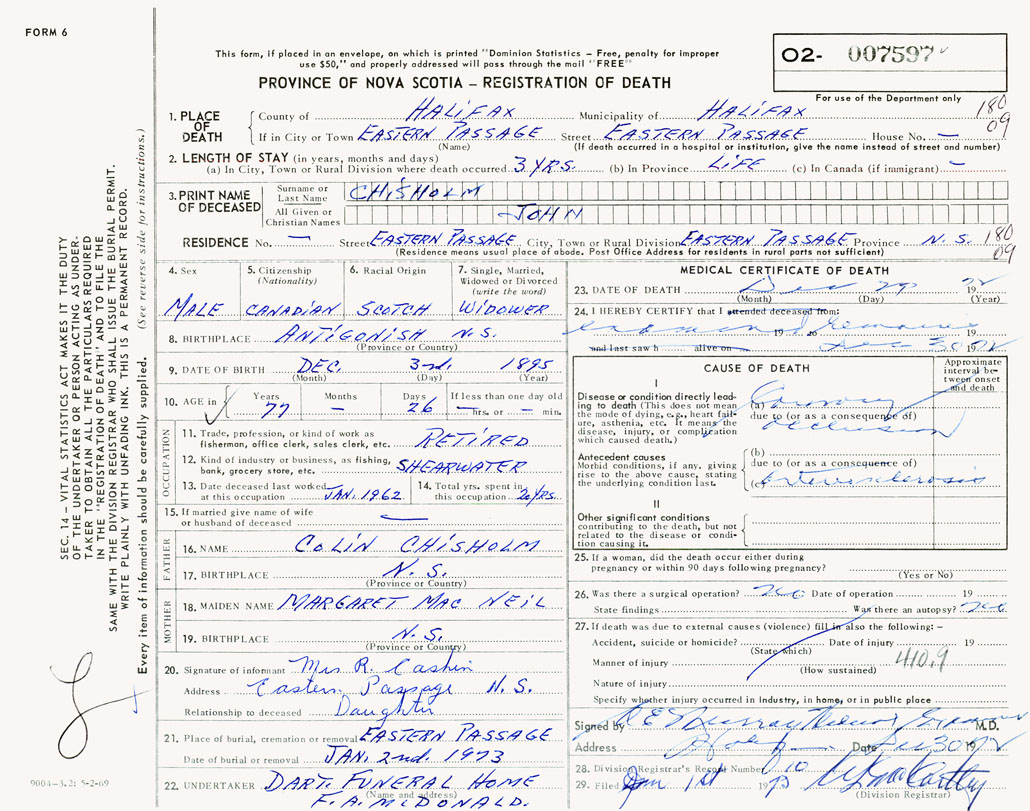 FORM 6
This form, if placed in an envelope, on which is printed "Dominion Statistics – Free, penalty for improper
use $50," and properly addressed will pass through the mail "FREE"
PROVINCE OF NOVA SCOTIA – REGISTRATION OF DEATH
02- 007597
For use of the Department only
180
09
1. PLACE OF DEATH
County of HALIFAX Municipality of HALIFAX
If in City or Town EASTERN PASSAGE Street EASTERN PASSAGE House No. —
(Name) (If death occurred in a hospital or institution, give the name instead of street and number)
2. LENGTH OF STAY (in years, months and days)
(a) In City, Town or Rural Division where death occurred 3 YRS. (b) In Province LIFE (c) In Canada (if immigrant) –
3. PRINT NAME OF DECEASED
Surname or Last Name CHISHOLM
All Given or Christian Names JOHN
RESIDENCE No. — Street EASTERN PASSAGE City, Town or Rural Division EASTERN PASSAGE Province N. S. 180
09
(Residence means usual place of abode. Post Office Address for residents in rural parts not sufficient)
4. Sex
MALE
5. Citizenship
(Nationality)
CANADIAN
6. Racial Origin
SCOTCH
7. Single, Married,
Widowed or Divorced
(write the word)
WIDOWER
8. BIRTHPLACE ANTIGONISH N.S.
(Province or Country)
9. DATE OF BIRTH DEC. 3rd. 1895
(Month) (Day) (Year)
10. AGE in
Years
77
Months
–
Days
26
If less than one day old
— hrs. or – min.
OCCUPATION
11. Trade, profession, or kind of work as
fisherman, office clerk, sales clerk, etc. RETIRED
12. Kind of industry or business, as fishing,
bank, grocery store, etc. SHEARWATER
13. Date deceased last worked
at this occupation JAN. 1962
14. Total yrs. spent in
this occupation 20 YRS.
15. If married give name of wife
or husband of deceased —
FATHER
16. NAME COLIN CHISHOLM
17. BIRTHPLACE N. S.
(Province or Country)
MOTHER
18. MAIDEN NAME MARGARET MAC NEIL
19. BIRTHPLACE N. S.
(Province or Country)
20. Signature of informant Mrs. R. Cashin
Address Eastern Passage N. S.
Relationship to deceased Daughter
21. Place of burial, cremation or removal EASTERN PASSAGE
Date of burial or removal JAN. 2nd. 1973
22. UNDERTAKER DART. FUNERAL HOME
(Name and address)
F. A. MCDONALD.
MEDICAL CERTIFICATE OF DEATH
23. DATE OF DEATH Dec 29 1972
(Month) (Day) (Year)
24. I HEREBY CERTIFY that I attended deceased from:
examined 19 to remains
and last saw h alive on Dec 30 1972
CAUSE OF DEATH
Approximate
interval be-
tween onset
and death
I
Disease or condition directly lead-
ing to death (This does not mean
the mode of dying, e.g., heart fail-
ure, asthenia, etc. It means the
disease, injury, or complication
which caused death.)
(a) Coronary
due to (or as a consequence of)
occlusion
Antecedent causes
Morbid conditions, if any, giving
rise to the above cause, stating
the underlying condition last.
(b)
due to (or as a consequence of)
(c) Arteriosclerosis
II
Other significant conditions
contributing to the death, but not
related to the disease or condi-
tion causing it.
25. If a woman, did the death occur either during
pregnancy or within 90 days following pregnancy?
(Yes or No)
26. Was there a surgical operation? no Date of operation 19
State findings Was there an autopsy? no
27. If death was due to external causes (violence) fill in also the following: –
Accident, suicide or homicide? Date of injury 19
(State which)
Manner of injury 410.9
(How sustained)
Nature of injury
Specify whether injury occurred in industry, in home, or in public place
Signed by Murray Medical Examiner M.D.
Address Date Dec 30 1972
28. Division Registrar's Record Number 10
29. Filed Jan 1st 1973
(Division Registrar)
SEC. 14 – VITAL STATISTICS ACT MAKES IT THE DUTY
OF THE UNDERTAKER OR PERSON ACTING AS UNDER-
TAKER TO OBTAIN ALL THE PARTICULARS REQUIRED
IN THE "REGISTRATION OF DEATH" AND TO FILE THE
SAME WITH THE DIVISION REGISTRAR WHO SHALL ISSUE THE BURIAL PERMIT.
WRITE PLAINLY WITH UNFADING INK. THIS IS A PERMANENT RECORD.
Every item of information should be carefully supplied. (See reverse side for instructions.)
9004-3.2: 5-2-69